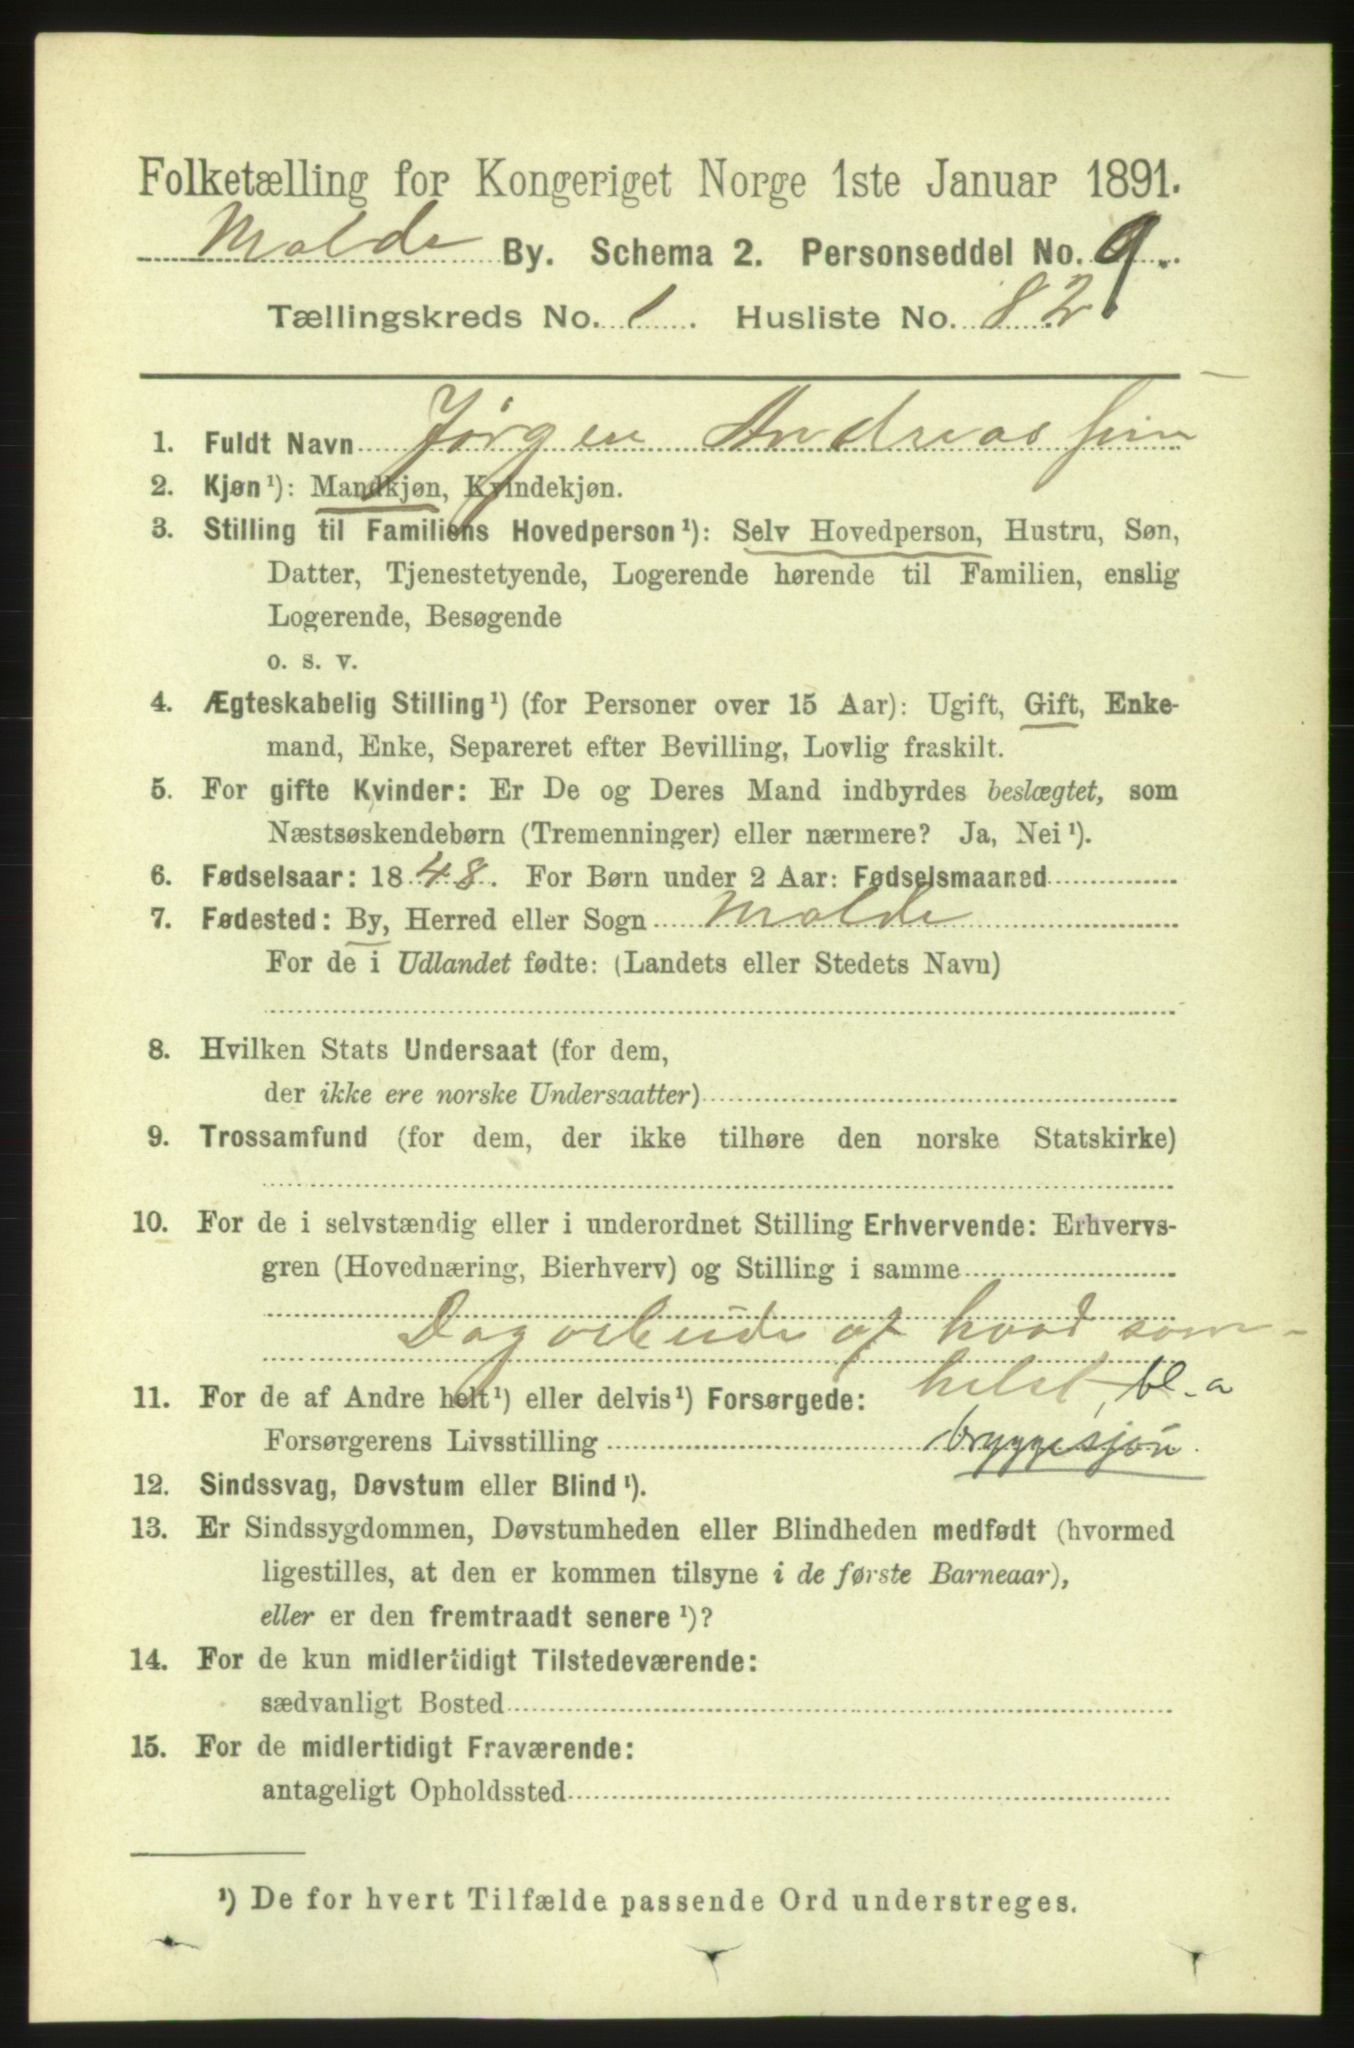 Folketælling for Kongeriget Norge 1ste Januar 1891.
Molde By. Schema 2. Personseddel No. 9.
Tællingskreds No. 1. Husliste No. 82
1. Fuldt Navn Jørgen Andreassen
2. Kjøn¹): Mandkjøn, Kvindekjøn.
3. Stilling til Familiens Hovedperson¹): Selv Hovedperson, Hustru, Søn,
Datter, Tjenestetyende, Logerende hørende til Familien, enslig
Logerende, Besøgende
o. s. v.
4. Ægteskabelig Stilling¹) (for Personer over 15 Aar): Ugift, Gift, Enke-
mand, Enke, Separeret efter Bevilling, Lovlig fraskilt.
5. For gifte Kvinder: Er De og Deres Mand indbyrdes beslægtet, som
Næstsøskendebørn (Tremenninger) eller nærmere? Ja, Nei¹).
6. Fødselsaar: 1848. For Børn under 2 Aar: Fødselsmaaned
7. Fødested: By, Herred eller Sogn Molde
For de i Udlandet fødte: (Landets eller Stedets Navn)
8. Hvilken Stats Undersaat (for dem,
der ikke ere norske Undersaatter)
9. Trossamfund (for dem, der ikke tilhøre den norske Statskirke)
10. For de i selvstændig eller i underordnet Stilling Erhvervende: Erhvervs-
gren (Hovednæring, Bierhverv) og Stilling i samme
Dagarbeide af hvad som-
helst, bl. a
11. For de af Andre helt¹) eller delvis¹) Forsørgede:
Forsørgerens Livsstilling bryggesjou
12. Sindssvag, Døvstum eller Blind¹).
13. Er Sindssygdommen, Døvstumheden eller Blindheden medfødt (hvormed
ligestilles, at den er kommen tilsyne i de første Barneaar),
eller er den fremtraadt senere¹)?
14. For de kun midlertidigt Tilstedeværende:
sædvanligt Bosted
15. For de midlertidigt Fraværende:
antageligt Opholdssted
¹) De for hvert Tilfælde passende Ord understreges.